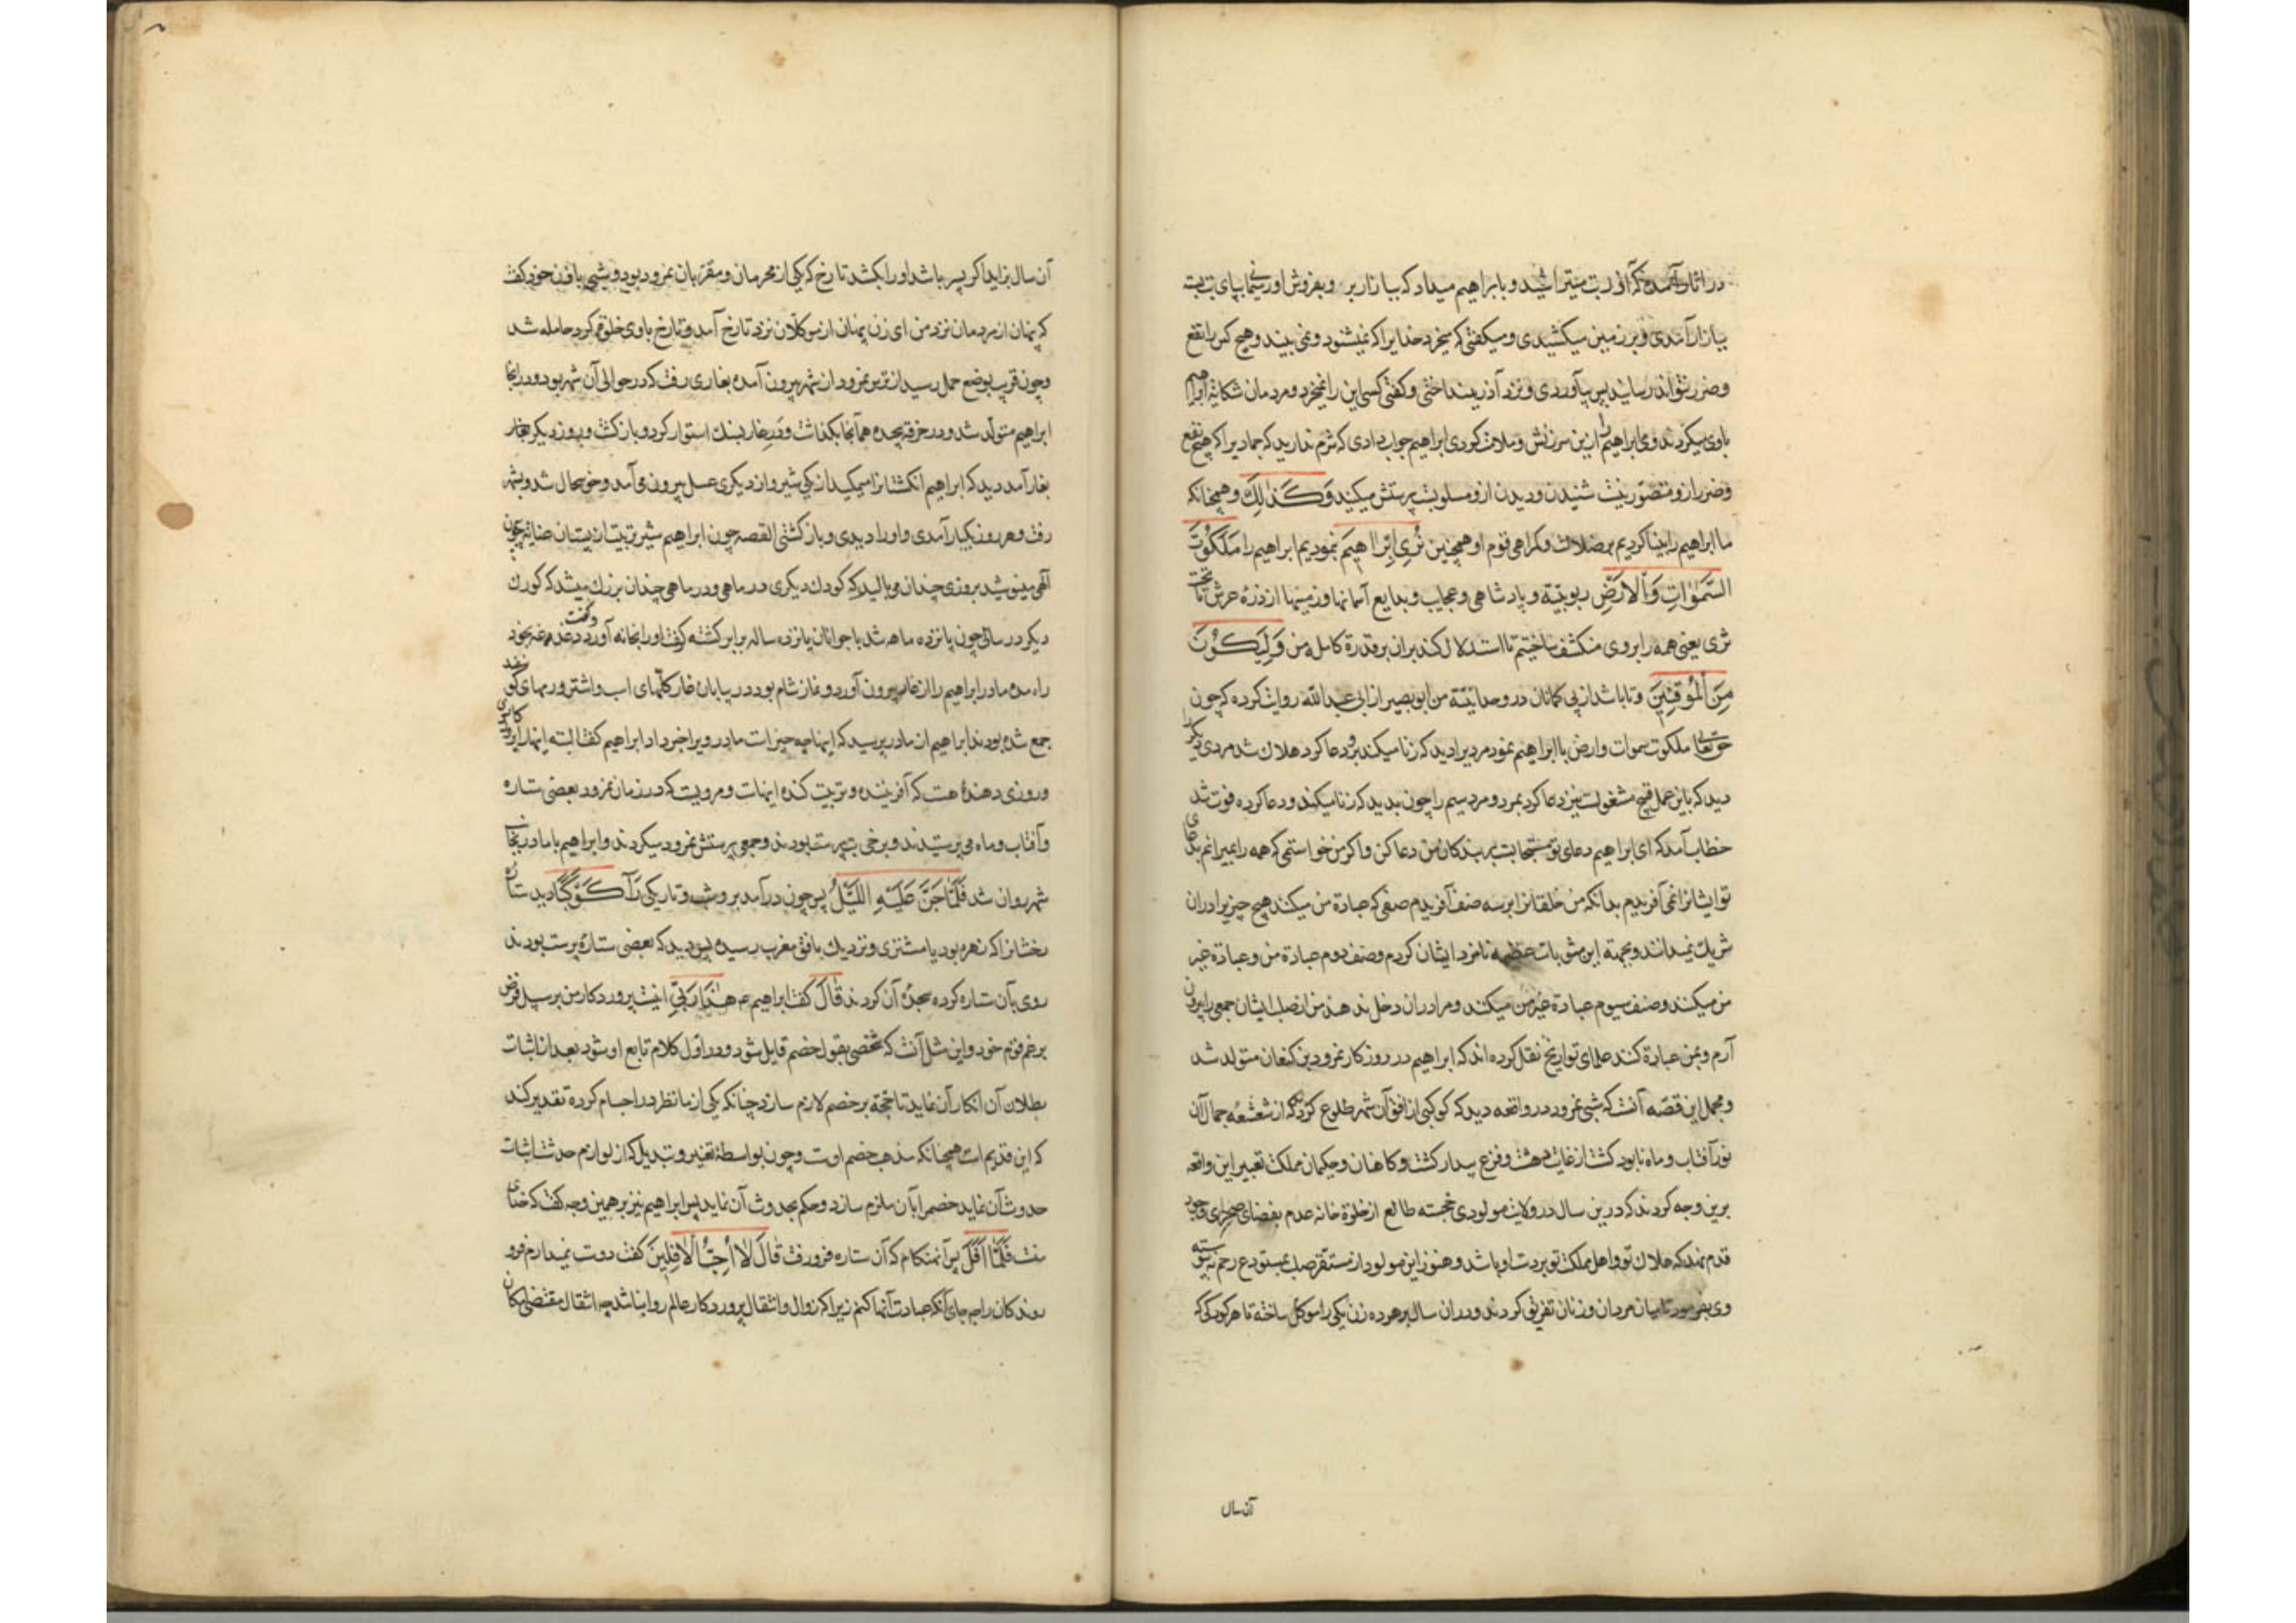 در اثار آمده که آزر بت میتراشید و بابراهیم میداد که ببازار بر و بفروش او ریسمانی بپای بت بسته
ببازار آمدی و بر زمین میکشیدی و میکفتی که میخرد خدایرا که نمیشنود و نمی بیند و هیچ کس را نفع
و ضرر نتواند رسانید پس بیآوردی و نزد آذر بینداختی و کفتی کسی این را نمیخرد و مردمان شکایة ابراهیم
باوی میکردند و وی ابراهیم را ازین سرزنش و ملامت کردی ابراهیم جواب دادی که شرم ندارید که جمادیرا که هیچ نفع
و ضرر ازو متصور نیست شنیدن و دیدن ازو مسلوبست پرستش میکنید وَكَذٰلِكَ و همچنانکه
ما ابراهیم را بینا کردیم بر ضلالت و کمراهی قوم او همچنین نُرِي اِبْرٰاهِيمَ نمودیم ابراهیم را مَلَكُوتَ
السَّمٰوٰاتِ وَالْاَرْضِ ربوبیّة و پادشاهی و عجایب و بدایع آسمانها و زمینها از ذرۀ عرش تا تحت
ثری یعنی همه را بر وی منکشف ساختیم تا استدلال کند بران بر قدرة کامل من وَلِيَكُونَ
مِنَ الْمُوقِنِينَ و تا باشد از بی کمانان در وحدانیّة من ابو بصیر از ابی عبد الله روایت کرده که چون
حق تعالی ملکوت سموات و ارض با ابراهیم نمود مردیرا دید که زنا میکند برو دعا کرد هلاک شد مردی دیکر
دید که باین عمل قبیح مشغولست نیز دعا کرد بمرد و مرد سیم را چون بدید که زنا میکند و دعا کرده فوت شد
خطاب آمد که ای ابراهیم دعای تو مستجابست بر بندکان من دعا مکن و اکر من خواستمی که همه را بمیرانم بدعای
تو ایشانرا نمی آفریدم بدانکه من خلقانرا بر سه صنف آفریدم صنفی که عبادة من میکند هیچ چیزیرا دران
شریک نمیدانند و بجهة این مثوبات عظیمه نامزد ایشان کردم و صنف دوم عبادة من و عبادة غیر
من میکند و صنف سیوم عبادة غیر من میکند و مرا دران دخل ندهند من از صلب ایشان جمعی را بیرون
آرم و بمن عبادة کنند علمای تواریخ نقل کرده اند که ابراهیم در روزکار نمرود بن کنعان متولد شد
و مجمل این قصّه آنست که شبی نمرود در واقعه دید که کوکبی از افق آن شهر طلوع کرد که از شعشعۀ جمال آن
نور آفتاب و ماه نابود کشت از غایت دهشت و فزع بیدار کشت و کاهنان و حکیمان مملکت تعبیر این واقعه
برین وجه کردند که درین سال در ولایت مولودی خجسته طالع از خلوة خانه عدم بفضای صحرای وجود
قدم نهد که هلاک تو و اهل مملکت تو بر دست او باشد و هنوز این مولود از مستقر صلب بمستودع رحم نپیوسته
وی بفرمود تا میان مردان و زنان تفریق کردند و دران سال بر هر ده زن یکی را موکل ساخته تا هر کودکی که
آن سال
آن سال بزاید اکر پسر باشد اورا بکشد تا رخ که یکی از محرمان و مقرّبان نمرود بود و شبی با زن خود کفت
که پنهان از مردمان نزد من ای زن پنهان از موکّلان نزد تارخ آمد و تارخ باوی خلوتی کرد حامله شد
و چون قریب بوضع حمل رسید از ترس نمرود از شهر بیرون آمده بغاری رفت که در حوالی آن شهر بود و در انجا
ابراهیم متولّد شد و در خرقه پیچیده همآنجا بکذاشت و در غار بسنک استوار کرد و باز کشت و بروز دیکر
بغار آمد دید که ابراهیم انکشتانرا میمکید از یکی شیر و از دیکری عسل بیرون می آمد و خوشحال شد و بشهر
رفت و هر روز یکبار آمدی و اورا دیدی و باز کشتی القصه چون ابراهیم شیر تربیت از پستان عنایت بیچون
الهی مینوشید بروزی چندان می بالید که کودک دیکری در ماهی و در ماهی چندان بزرک میشد که کودک
دیکر در سالی چون پانزده ماهه شد با جوانان پانزده ساله برابر کشته کفت اورا بخانه آورد و کفت
راه مده مادر ابراهیم را از غار بیرون آورد و نماز شام بود در بیابان غار کلّهای اسب و اشتر و رمهای کوسفند
جمع شده بودند ابراهیم از مادر پرسید که اینها چه چیز است مادر ویرا خبر داد ابراهیم کفت البته اینهارا
و روزی دهندۀ هست که آفریننده و تربیت کننده اینهاست و مرویست که در زمان نمرود بعضی ستاره
و آفتاب و ماه می پرستیدند و برخی بت پرست بودند و جمعی پرستش نمرود میکردند و ابراهیم با مادر بجانب
شهر روان شد فَلَمّٰا جَنَّ عَلَيْهِ اللَّيْلُ پس چون درآمد برو شب و تاریکی رَآ كَوْكَبًا دید ستارۀ
رخشانرا که زهره بود یا مشتری و نزدیک بافق مغرب رسیده پس دید که بعضی ستاره پرست بودند
روی بآن ستاره کرده سجدۀ آن کردند قٰالَ کفت ابراهیم م هٰذٰا رَبّي اینست پروردکار من بر سبیل فرض
بر زعم قوم خود و این مثل آنست که شخصی بقول خصم قایل شود و در اوّل کلام تابع او شود بعد از اثبات
بطلان آن انکار آن نماید تا حجّة بر خصم لازم سازد چنانکه یکی از ما نظر در اجسام کرده تقدیر کند
که این قدیم است همچنانکه مذهب خصم اوست و چون بواسطۀ تغیر و تبدیل که از لوازم حدثست اثبات
حدوث آن نماید خصم را بآن ملزم سازد و حکم بحدوث آن نماید پس ابراهیم نیز بر همین وجه کفت که خدای
منست فَلَمّٰا اَفَلَ پس آنهنکام که آن ستاره فرو رفت قٰالَ لٰا اُحِبُّ الْاٰفِلِينَ کفت دوست نمیدارم فرو
روندکان را چه جای آنکه عبادت آنها کنم زیرا که زوال و انتقال پروردکار عالم روا نباشد چه انتقال مقتضی مکان